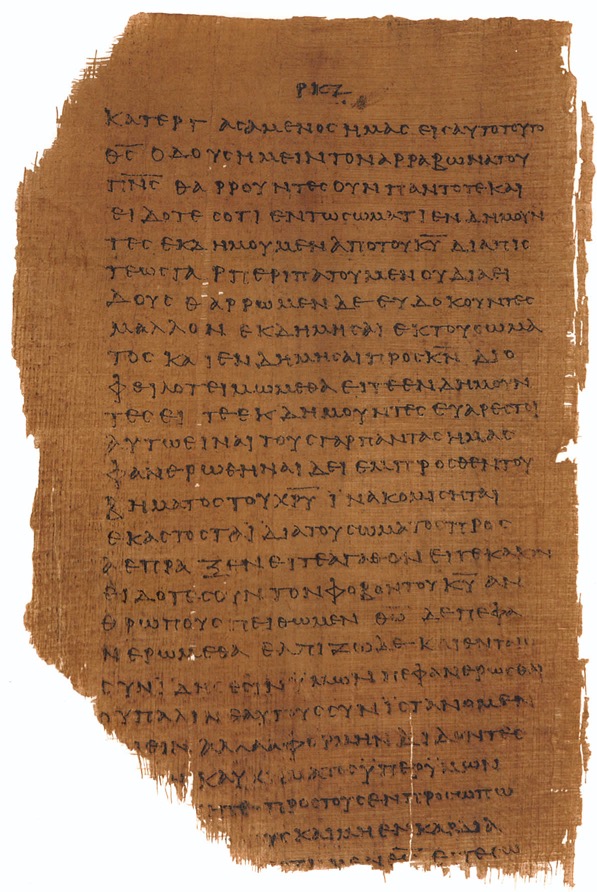 ΡΚΖ
ΚΑΤΕΡΓΑΣΑΜΕΝΟϹ ΗΜΑϹ ΕΙϹ ΑΥΤΟ ΤΟΥΤΟ
Θ̅Ϲ̅ Ο ΔΟΥϹ ΗΜΕΙΝ ΤΟΝ ΑΡΡΑΒΩΝΑ ΤΟΥ
Π̅Ν̅Ϲ̅ ΘΑΡΡΟΥΝΤΕϹ ΟΥΝ ΠΑΝΤΟΤΕ ΚΑΙ
ΕΙΔΟΤΕϹ ΟΤΙ ΕΝ ΤΩ ϹΩΜΑΤΙ ΕΝΔΗΜΟΥΝ
ΤΕϹ ΕΚΔΗΜΟΥΜΕΝ ΑΠΟ ΤΟΥ Κ̅Υ̅ ΔΙΑ ΠΙϹ
ΤΕΩϹ ΓΑΡ ΠΕΡΙΠΑΤΟΥΜΕΝ ΟΥ ΔΙΑ ΕΙ
ΔΟΥϹ ΘΑΡΡΩΜΕΝ ΔΕ ΕΥΔΟΚΟΥΝΤΕϹ
ΜΑΛΛΟΝ ΕΚΔΗΜΗϹΑΙ ΕΚ ΤΟΥ ϹΩΜΑ
ΤΟϹ ΚΑΙ ΕΝΔΗΜΗϹΑΙ ΠΡΟϹ Κ̅Ν̅ ΔΙΟ
ΦΕΙΛΟΤΕΙΜΩΜΕΘΑ ΕΙΤΕ ΕΝΔΗΜΟΥΝ
ΤΕϹ ΕΙΤΕ ΕΚΔΗΜΟΥΝΤΕϹ ΕΥΑΡΕϹΤΟΙ
ΑΥΤΩ ΕΙΝΑΙ ΤΟΥϹ ΓΑΡ ΠΑΝΤΑϹ ΗΜΑϹ
ΦΑΝΕΡΩΘΗΝΑΙ ΔΕΙ ΕΜΠΡΟϹΘΕΝ ΤΟΥ
ΒΗΜΑΤΟϹ ΤΟΥ Χ̅Ρ̅Υ̅ ΙΝΑ ΚΟΜΙϹΗΤΑΙ
ΕΚΑϹΤΟϹ ΤΑ ΙΔΙΑ ΤΟΥ ϹΩΜΑΤΟϹ ΠΡΟϹ
Α ΕΠΡΑΞΕΝ ΕΙΤΕ ΑΓΑΘΟΝ ΕΙΤΕ ΚΑΚΟΝ
ΕΙΔΟΤΕϹ ΟΥΝ ΤΟΝ ΦΟΒΟΝ ΤΟΥ Κ̅Υ̅ ΑΝ
ΘΡΩΠΟΥϹ ΠΕΙΘΩΜΕΝ Θ̅Ω̅ ΔΕ ΠΕΦΑ
ΝΕΡΩΜΕΘΑ ΕΛΠΙΖΩ ΔΕ ΚΑΙ ΕΝ ΤΑΙϹ
ϹΥΝΙΔΗϹΕϹΙΝ ΫΜΩΝ ΠΕΦΑΝΕΡΩϹΘΑΙ
ΟΥ ΠΑΛΙΝ ΕΑΥΤΟΥϹ ϹΥΝΙϹΤΑΝΟΜΕΝ
ΑΛΛΑ ΑΦΟΡΜΗΝ ΔΙΔΟΝΤΕϹ
ΚΑΥΧΗΜΑΤΟϹ ΫΠΕΡ ΫΜΩΝ
ΠΡΟϹ ΤΟΥϹ ΕΝ ΠΡΟϹΩΠΩ
ΚΑΙ ΜΗ ΕΝ ΚΑΡΔΙΑ